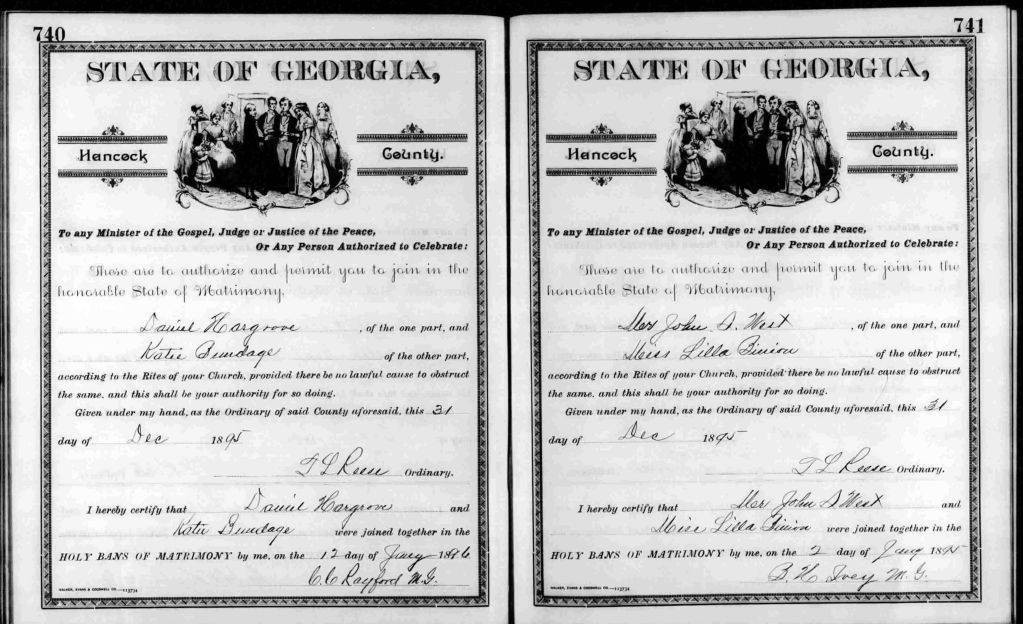 740
STATE OF GEORGIA,
Hancock County.
To any Minister of the Gospel, Judge or Justice of the Peace,
Or Any Person Authorized to Celebrate:
These are to authorize and permit you to join in the
honorable State of Matrimony,
Daniel Hargrove , of the one part, and
Katie Bundage of the other part,
according to the Rites of your Church, provided there be no lawful cause to obstruct
the same, and this shall be your authority for so doing.
Given under my hand, as the Ordinary of said County aforesaid, this 31
day of Dec 1895
T L Reese Ordinary.
I hereby certify that Daniel Hargrove and
Katie Bundage were joined together in the
HOLY BANS OF MATRIMONY by me, on the 12 day of Jany 1896
C C Rayford M.G.
WALKER, EVANS & COGSWELL CO.—113734
741
STATE OF GEORGIA,
Hancock County.
To any Minister of the Gospel, Judge or Justice of the Peace,
Or Any Person Authorized to Celebrate:
These are to authorize and permit you to join in the
honorable State of Matrimony,
Mer John S. West , of the one part, and
Miss Lilla Binion of the other part,
according to the Rites of your Church, provided there be no lawful cause to obstruct
the same, and this shall be your authority for so doing.
Given under my hand, as the Ordinary of said County aforesaid, this 31
day of Dec 1895
T L Reese Ordinary.
I hereby certify that Mer John S West and
Miss Lilla Binion were joined together in the
HOLY BANS OF MATRIMONY by me, on the 2 day of Jany 1895
B. H Ivey M.G.
WALKER, EVANS & COGSWELL CO.—113734